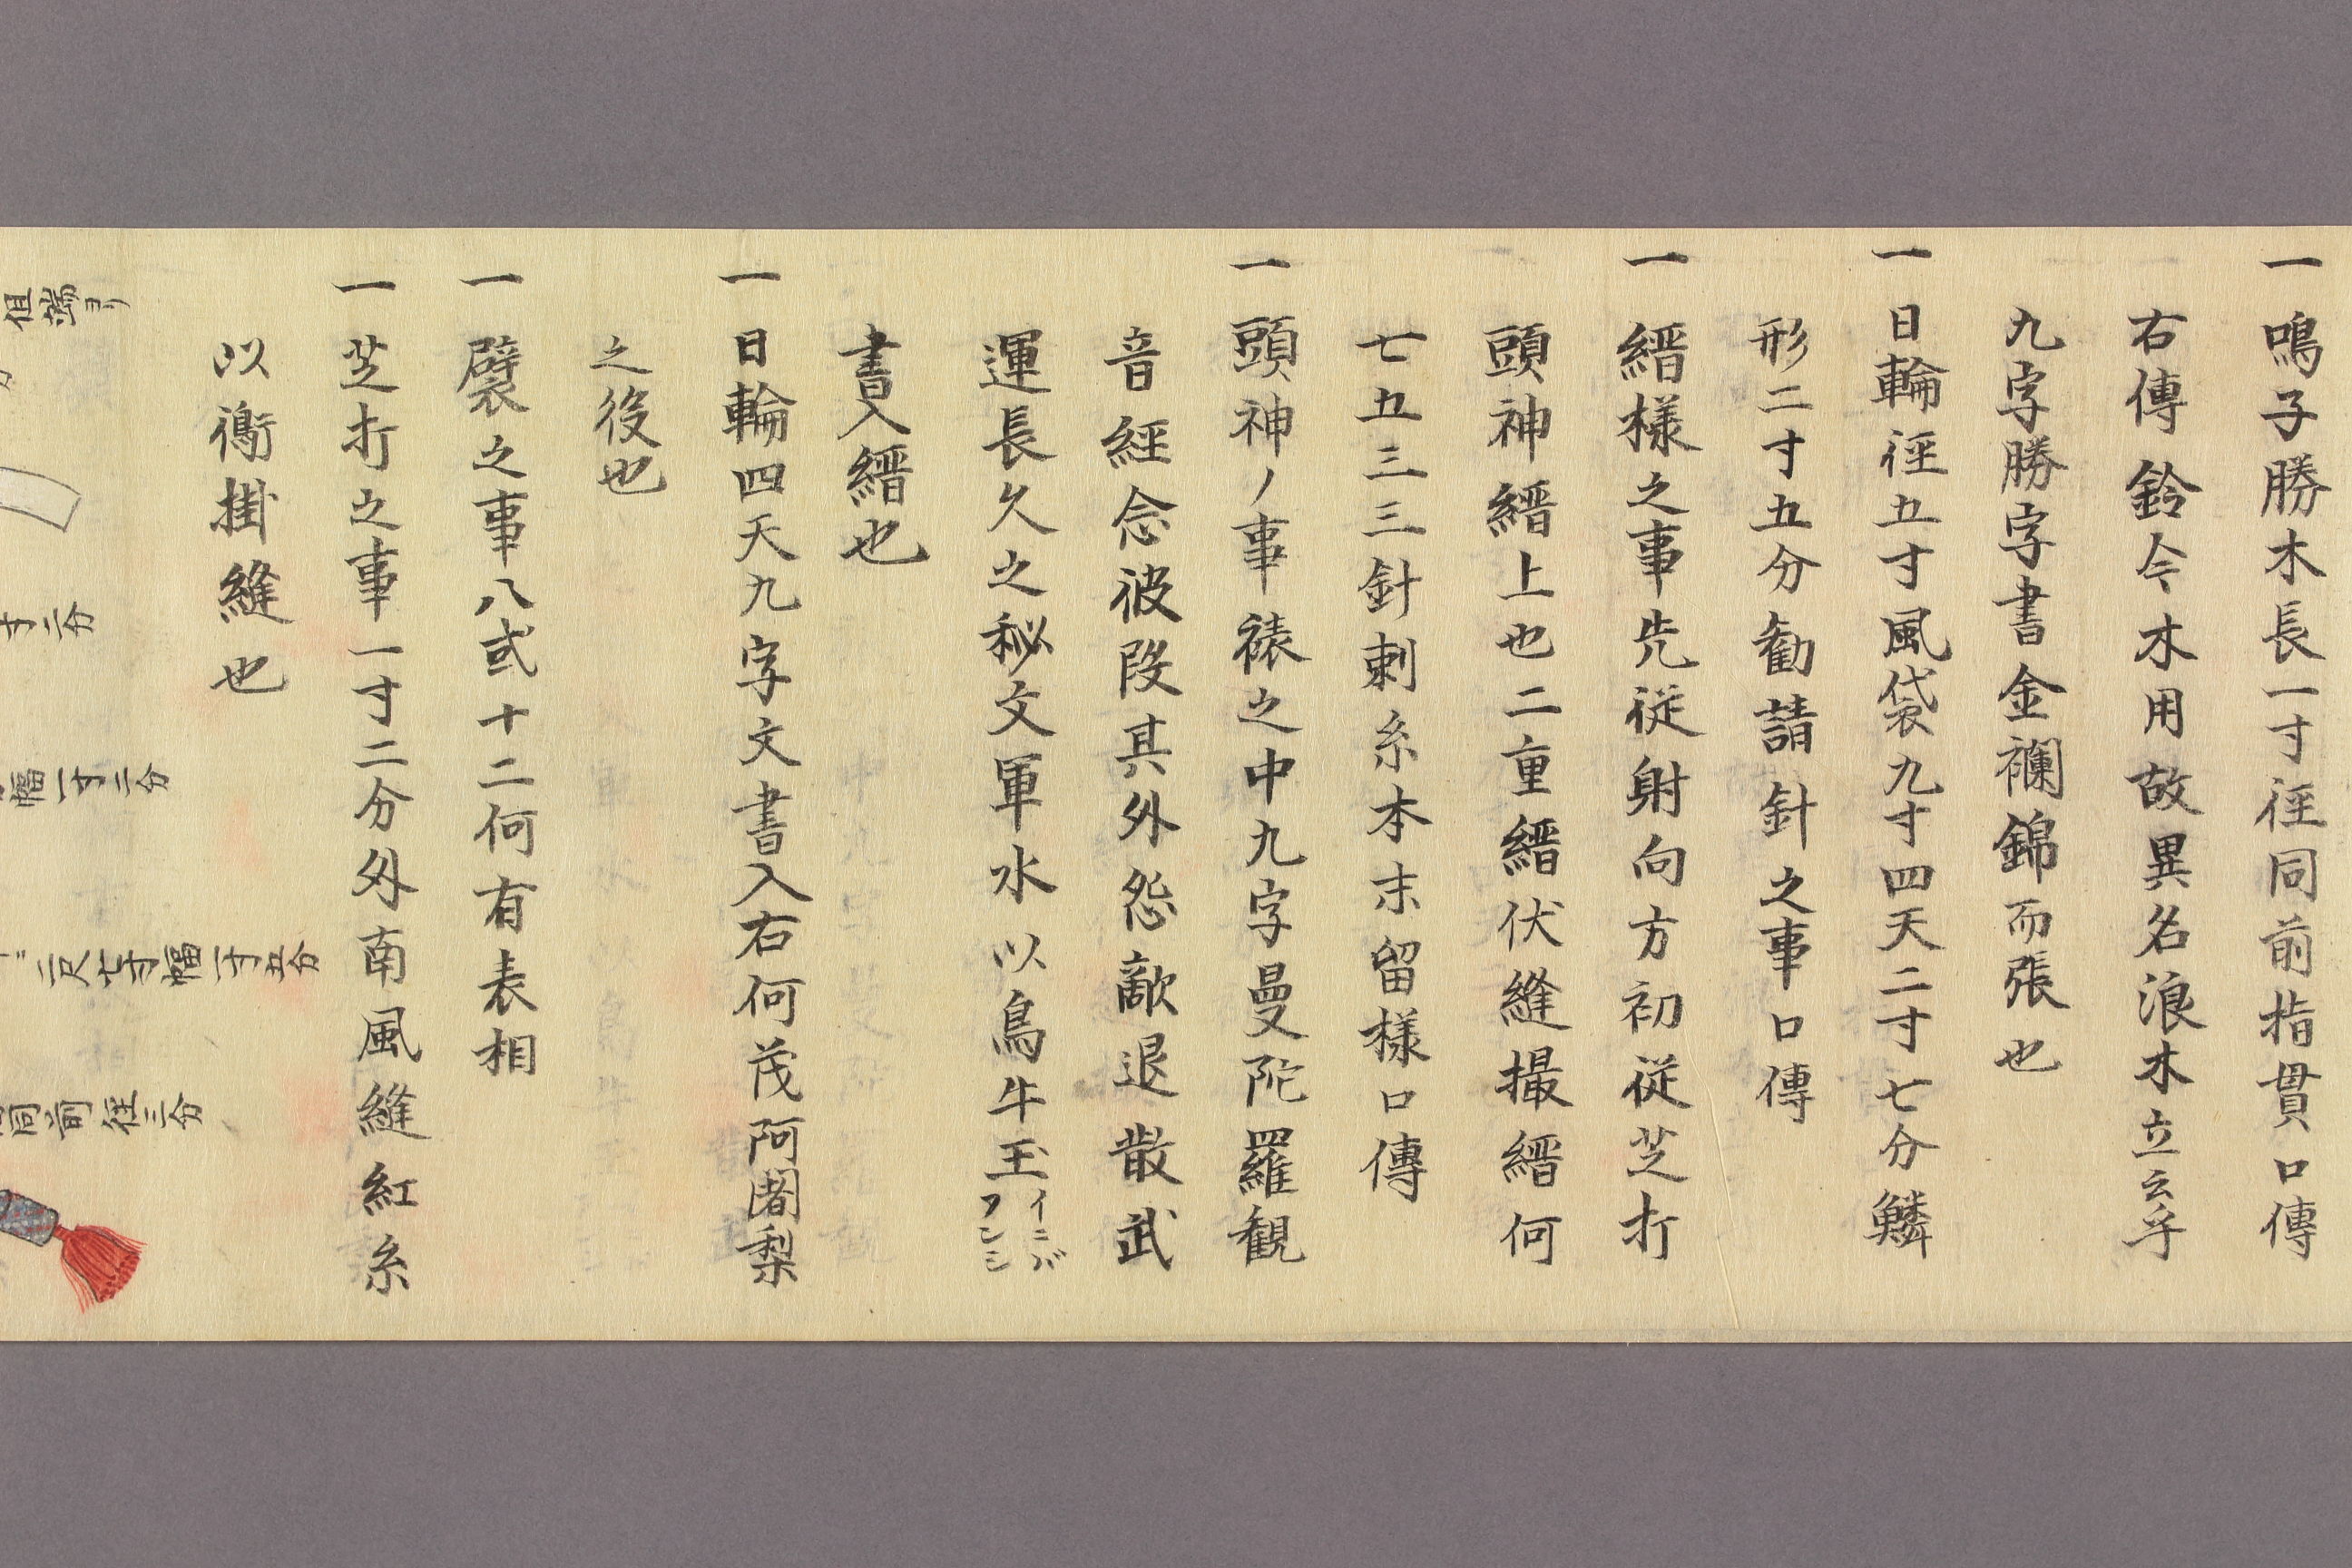 一鳴子勝木長一寸徑同前指貫口傳
右傳鈴今木用故異名浪木立云乎
九字勝字書金襴錦而張也
一日輪徑五寸風袋九寸四天二寸七分鱗
形二寸五分勧請針之事口傳
一縉様之事先從射向方初從芝打
頭神縉上也二重縉伏縫撮縉何
七五三三針刺糸本末留様口傳
一頭神ノ事裱之中九字曼陀羅観
音經念彼段其外怨敵退散武
運長久之秘文軍水以鳥牛玉イニバフンシ
書入縉也
一日輪四天九字文書入右何茂阿闍梨
之役也
一襞之事八或十二何有表相
一芝打之事一寸二分外南風縫紅糸
以衡掛縫也
二尺七寸幅一寸五分
同前徑三分
幅一寸二分
寸二分
端ヨリ